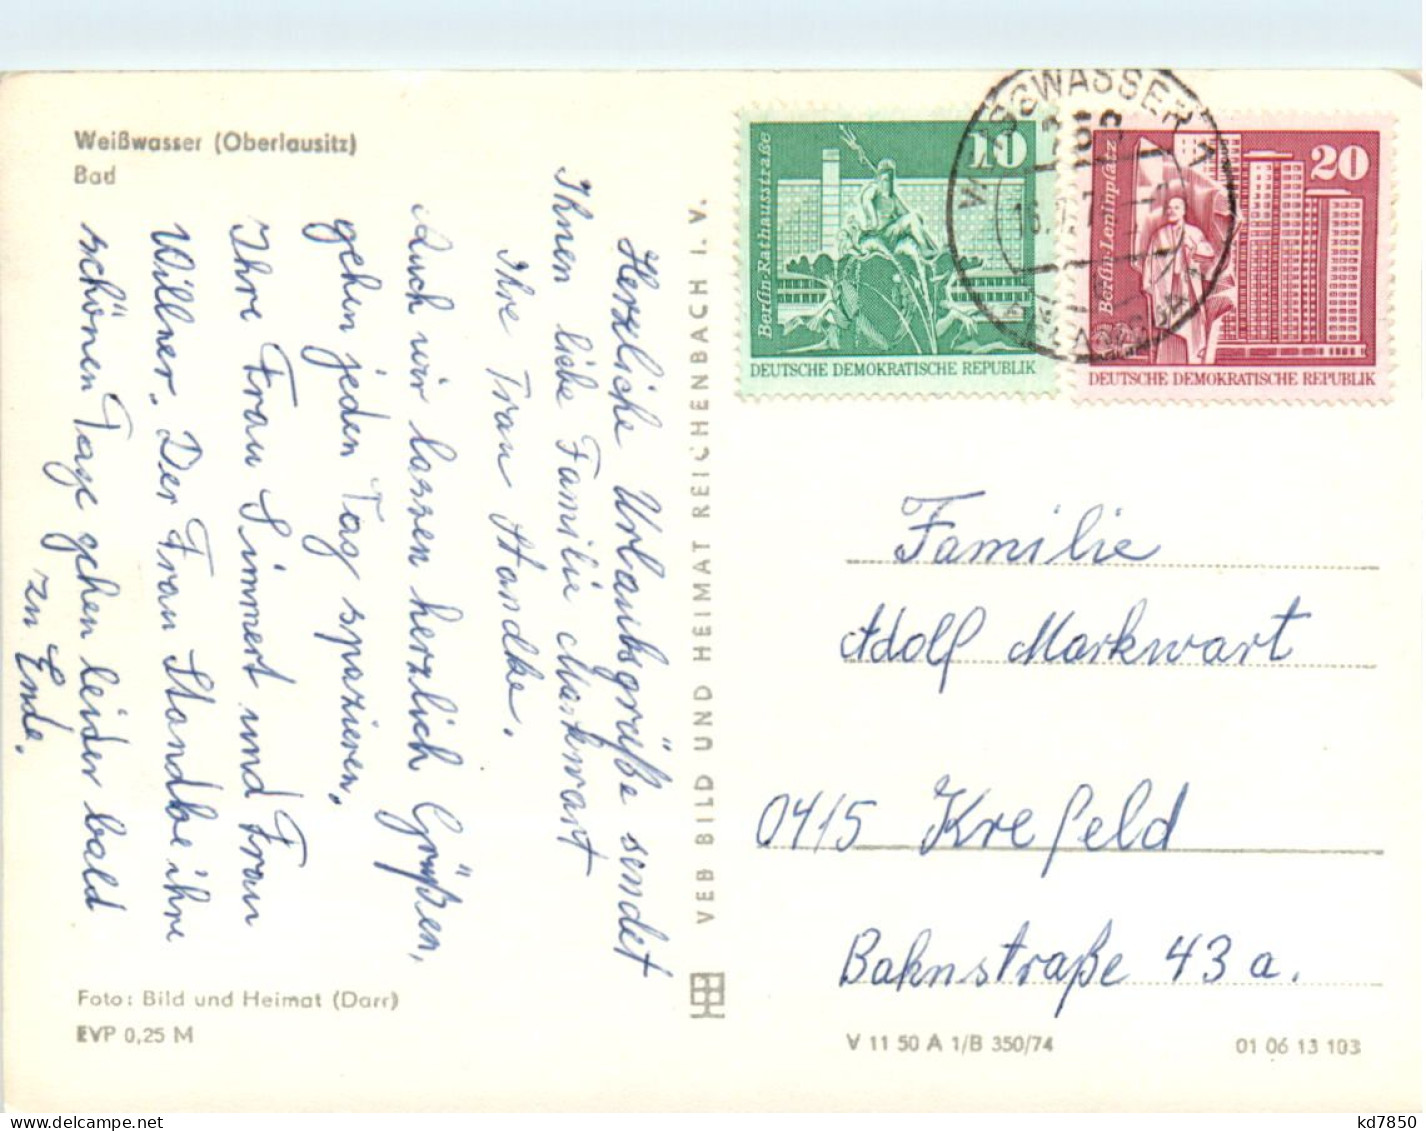 Weißwasser (Oberlausitz)
Bad
Herzliche Urlaubsgrüße sendet
Ihnen liebe Familie Markwart
Ihre Frau Standke.
Auch wir lassen herzlich Grüßen,
gehen jeden Tag spazieren.
Ihre Frau Simmert und Frau
Willner. Der Frau Standke ihre
schönen Tage gehen leider bald
zu Ende.
Foto: Bild und Heimat (Darr)
EVP 0,25 M
VEB BILD UND HEIMAT REICHENBACH I. V.
10
Berlin-Rathausstraße
DEUTSCHE DEMOKRATISCHE REPUBLIK
20
Berlin-Leninplatz
DEUTSCHE DEMOKRATISCHE REPUBLIK
Familie
Adolf Markwart
0415 Krefeld
Bahnstraße 43 a.
V 11 50 A 1/B 350/74
01 06 13 103
kd7850